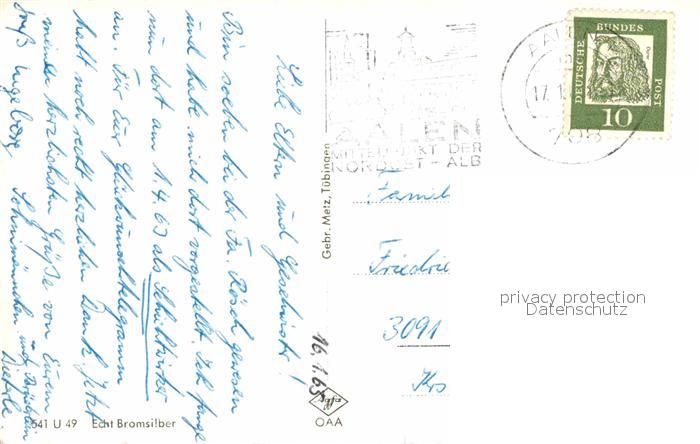 Liebe Eltern und Geschwister!
Bin soeben bei der Fa. Rösch gewesen
und habe mich dort vorgestellt. Ich fange
nun dort am 1.4.63 als Schichtwirker
an. Für Eur Glückwunschtelegramm
habt noch recht herzlichen Dank. Jetzt
meine herzlichsten Grüße von Eurem
Söhnemännchen und Brüderlein
Dieterle
Gruß Ingeborg
16.1.63
541 U 49 Echt Bromsilber
Gebr. Metz, Tübingen
Agfa
OAA
AALEN
MITTELPUKT DER
NORDOST-ALB
AALEN
17.1.
708
DEUTSCHE
BUNDES
POST
Dürer
10
Famil
Friedrie
3091
Krs
privacy protection
Datenschutz